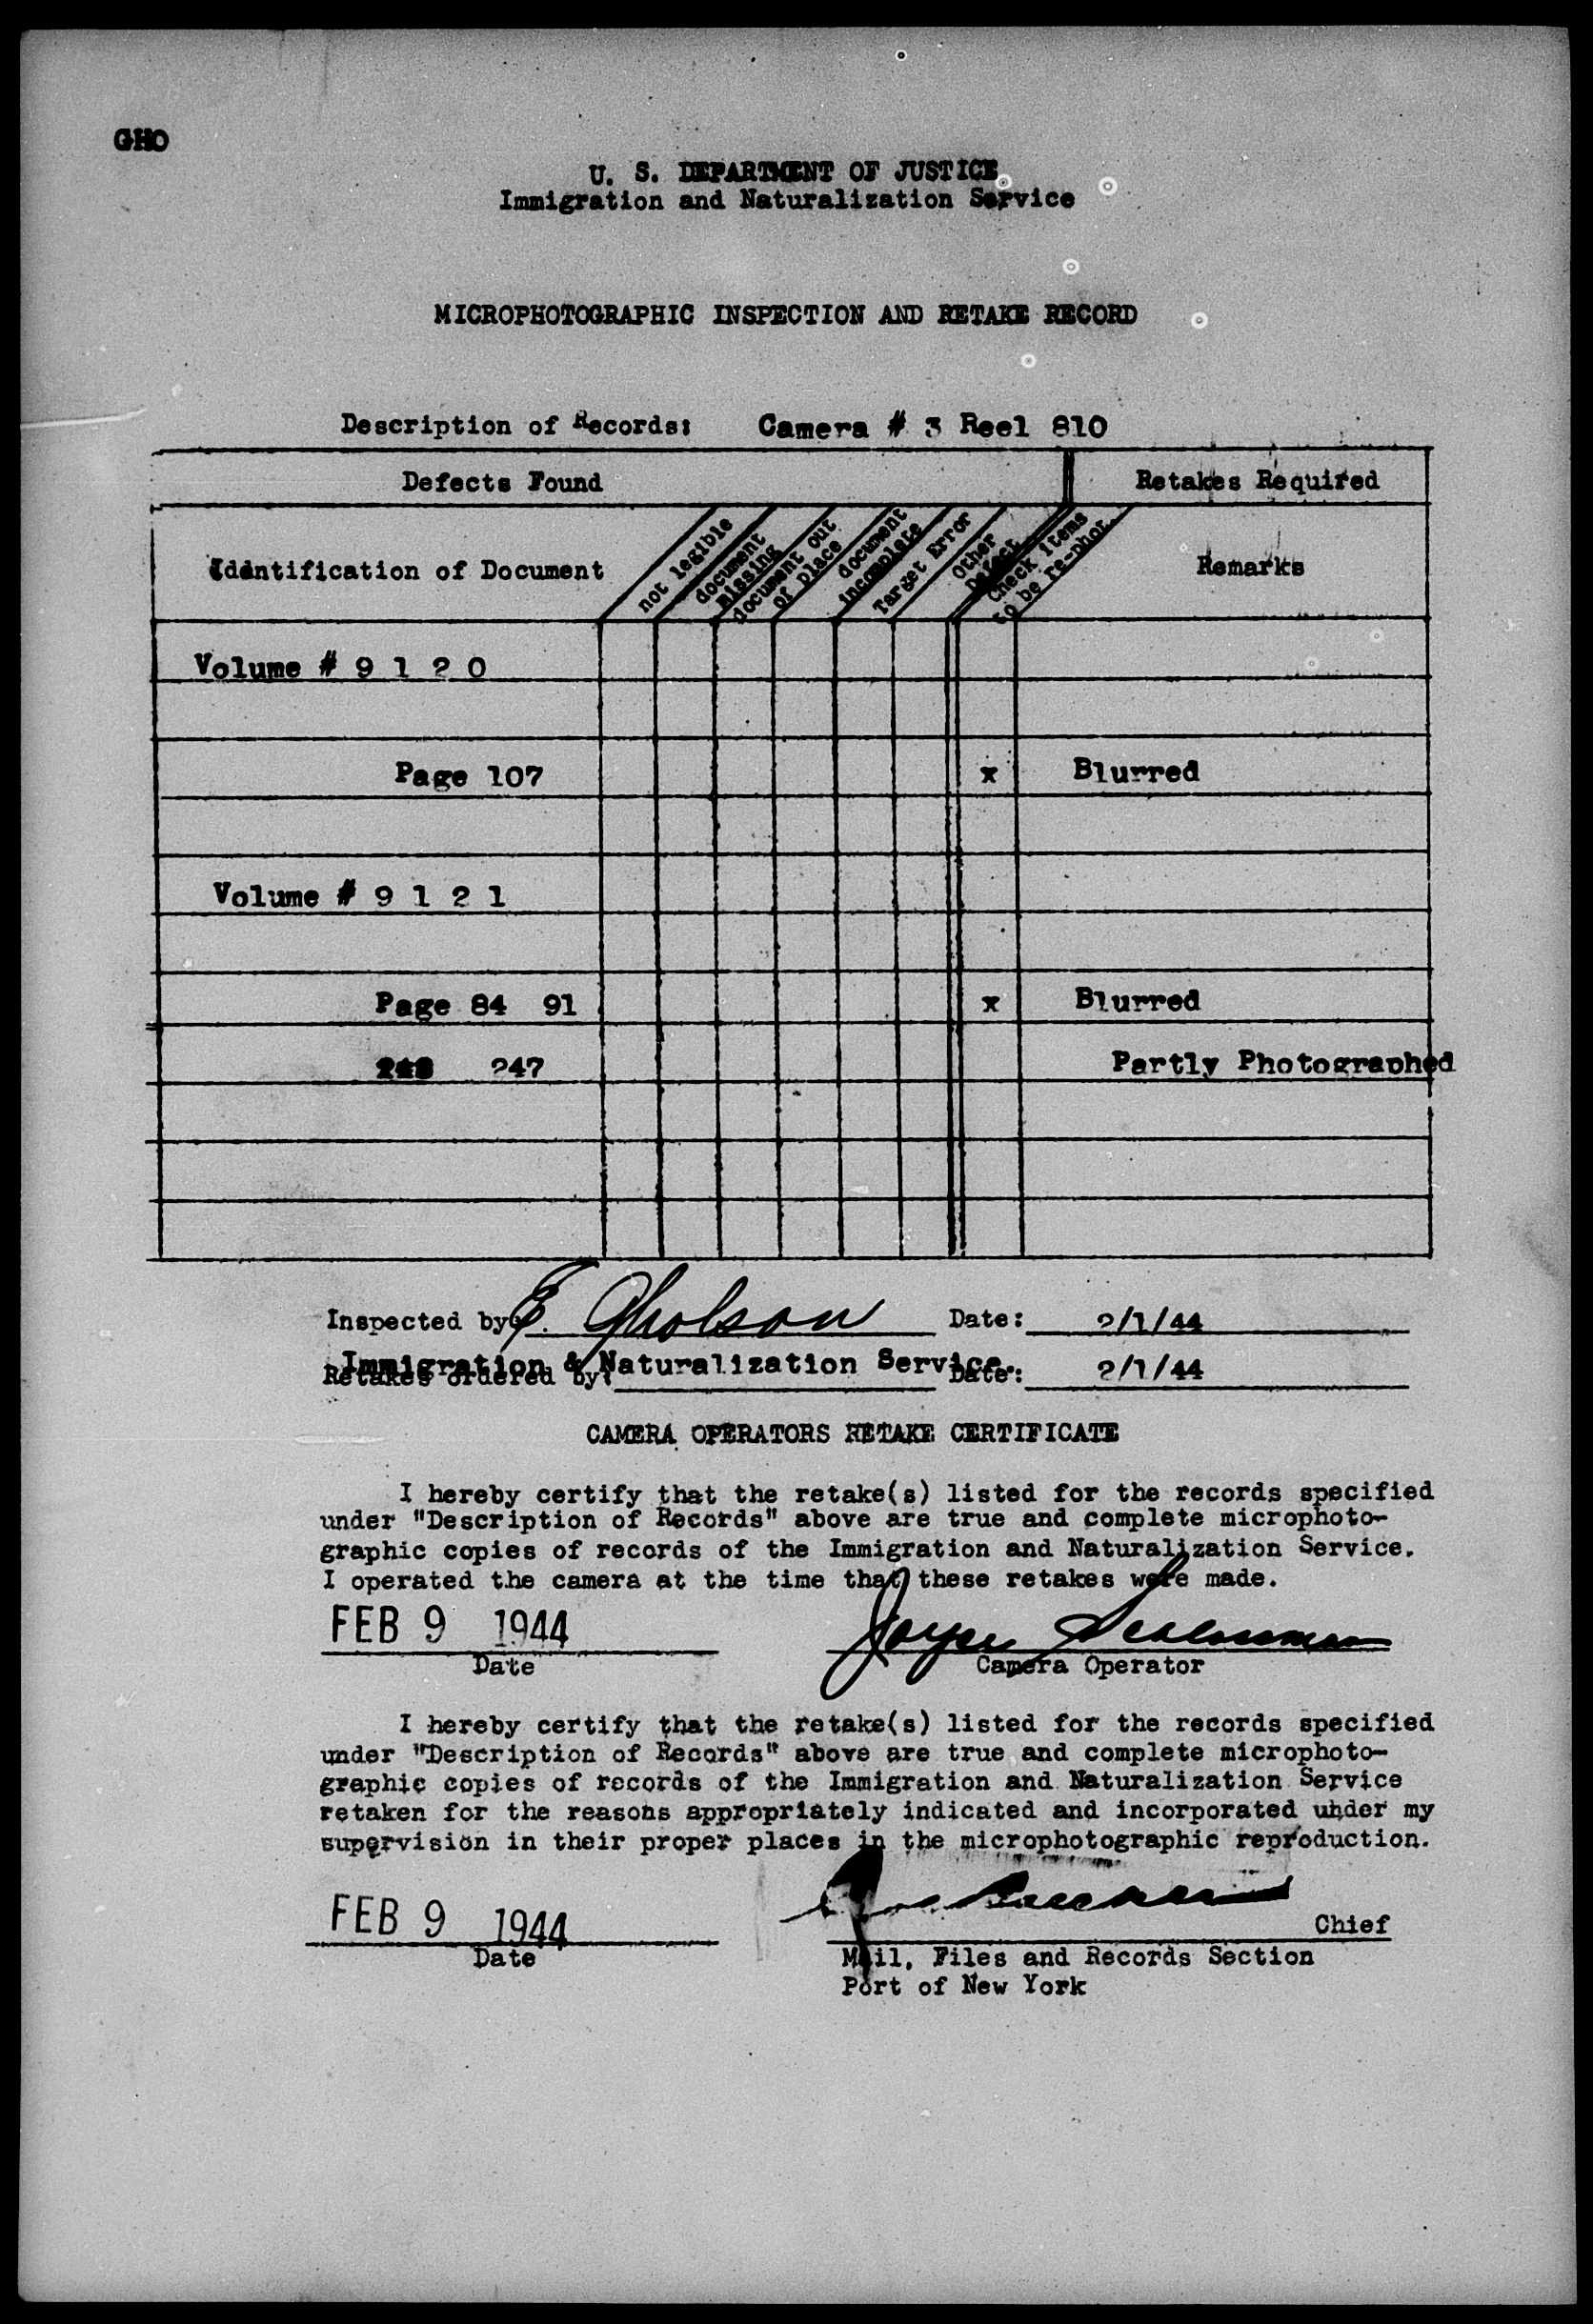 GHO
U. S. DEPARTMENT OF JUSTICE
Immigration and Naturalization Service
MICROPHOTOGRAPHIC INSPECTION AND RETAKE RECORD
Description of Records: Camera # 3 Reel 810
Defects Found Retakes Required
Identification of Document
not legible
document missing
document out of place
document incomplete
Target Error
Other Defect
Check items to be re-phot.
Remarks
Volume # 9 1 2 0
Page 107 x Blurred
Volume # 9 1 2 1
Page 84 91 x Blurred
247 Partly Photographed
Inspected by E. Gholson Date: 2/1/44
Immigration & Naturalization Service.
Retakes ordered by: Date: 2/1/44
CAMERA OPERATORS RETAKE CERTIFICATE
I hereby certify that the retake(s) listed for the records specified
under "Description of Records" above are true and complete microphoto-
graphic copies of records of the Immigration and Naturalization Service.
I operated the camera at the time that these retakes were made.
FEB 9 1944 Joyce
Date Camera Operator
I hereby certify that the retake(s) listed for the records specified
under "Description of Records" above are true and complete microphoto-
graphic copies of records of the Immigration and Naturalization Service
retaken for the reasons appropriately indicated and incorporated under my
supervision in their proper places in the microphotographic reproduction.
FEB 9 1944 Chief
Date Mail, Files and Records Section
Port of New York